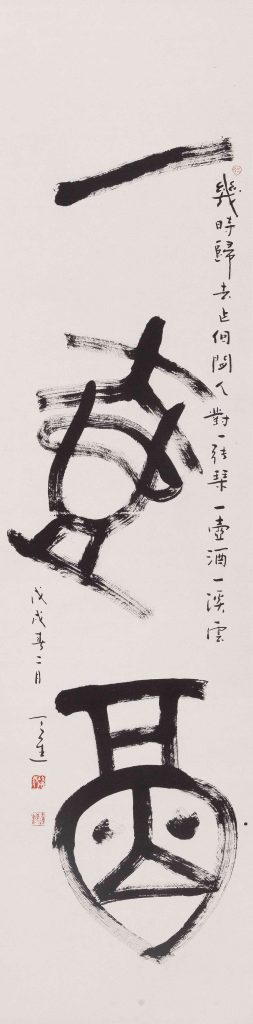 幾時歸去作個閒人對一張琴一壺酒一溪雲
一壺酉
戊戌春二月